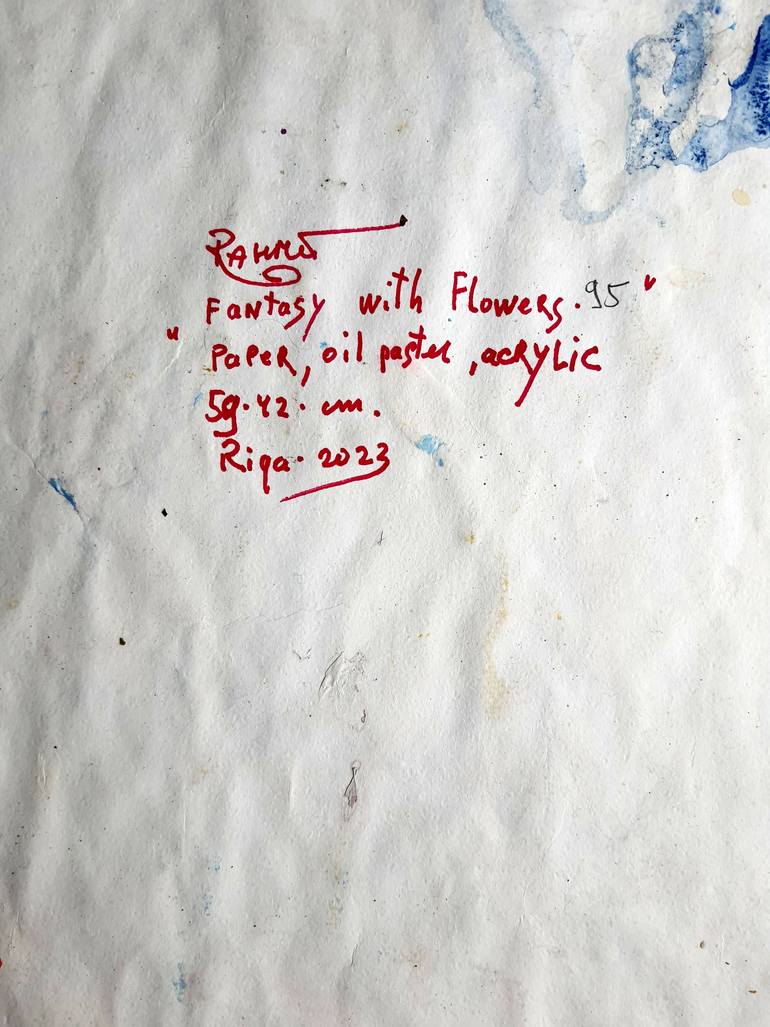 Fantasy with Flowers. 95"
" Paper, oil pastel, acrylic
59.42. cm.
Riga. 2023